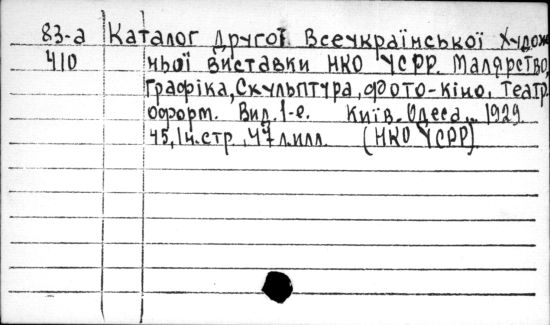 83-а Каталог Другої Всеукраїнської Худож
410 ньої виставки НКО УСРР. Малярство,
Графіка, Скульптура, фото-кіно, Театр.
оформ. Вид. 1-е. Київ-Одеса, 1929
45, 1 н. стр., 47 л. илл. (НКО УСРР)